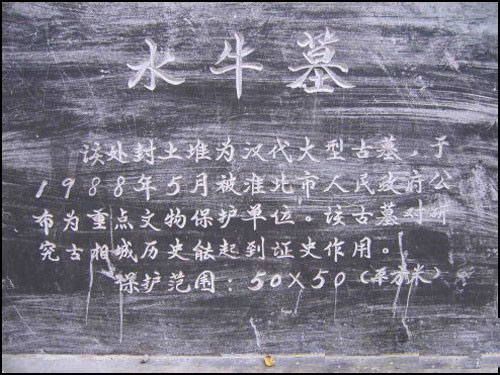 水牛墓
该处封土堆为汉代大型古墓，于
1988年5月被淮北市人民政府公
布为重点文物保护单位。该古墓对研
究古相城历史能起到证史作用。
保护范围：50×50（平方米）